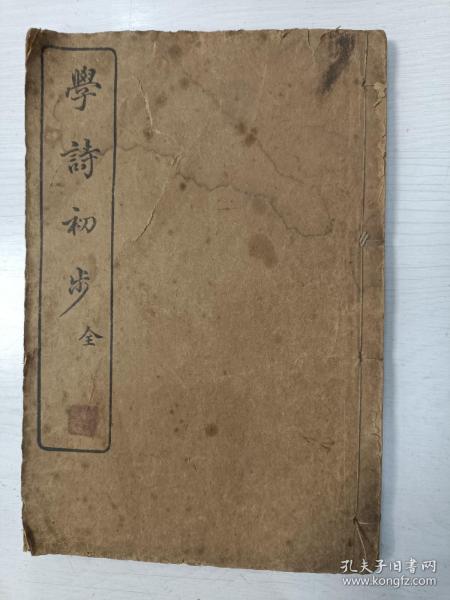 學詩初步
全
孔夫子旧书网
www.kongfz.com